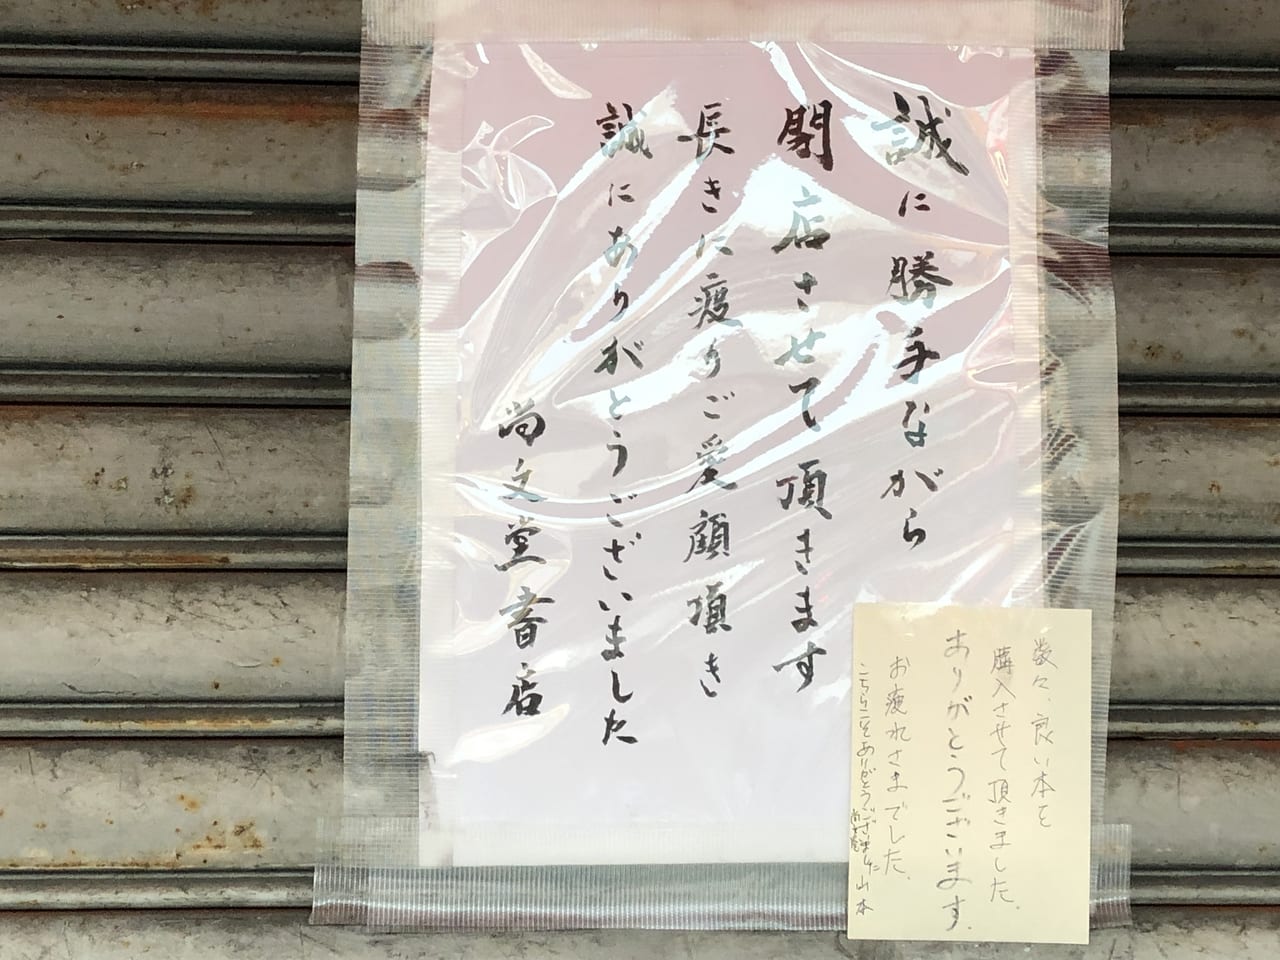 誠に勝手ながら
閉店させて頂きます
長きに渡りご愛顧頂き
誠にありがとうございました
尚文堂書店
数々、良い本を
購入させて頂きました。
ありがとうございます。
お疲れさまでした。
こちらこそありがとうございました 山本
尚文堂